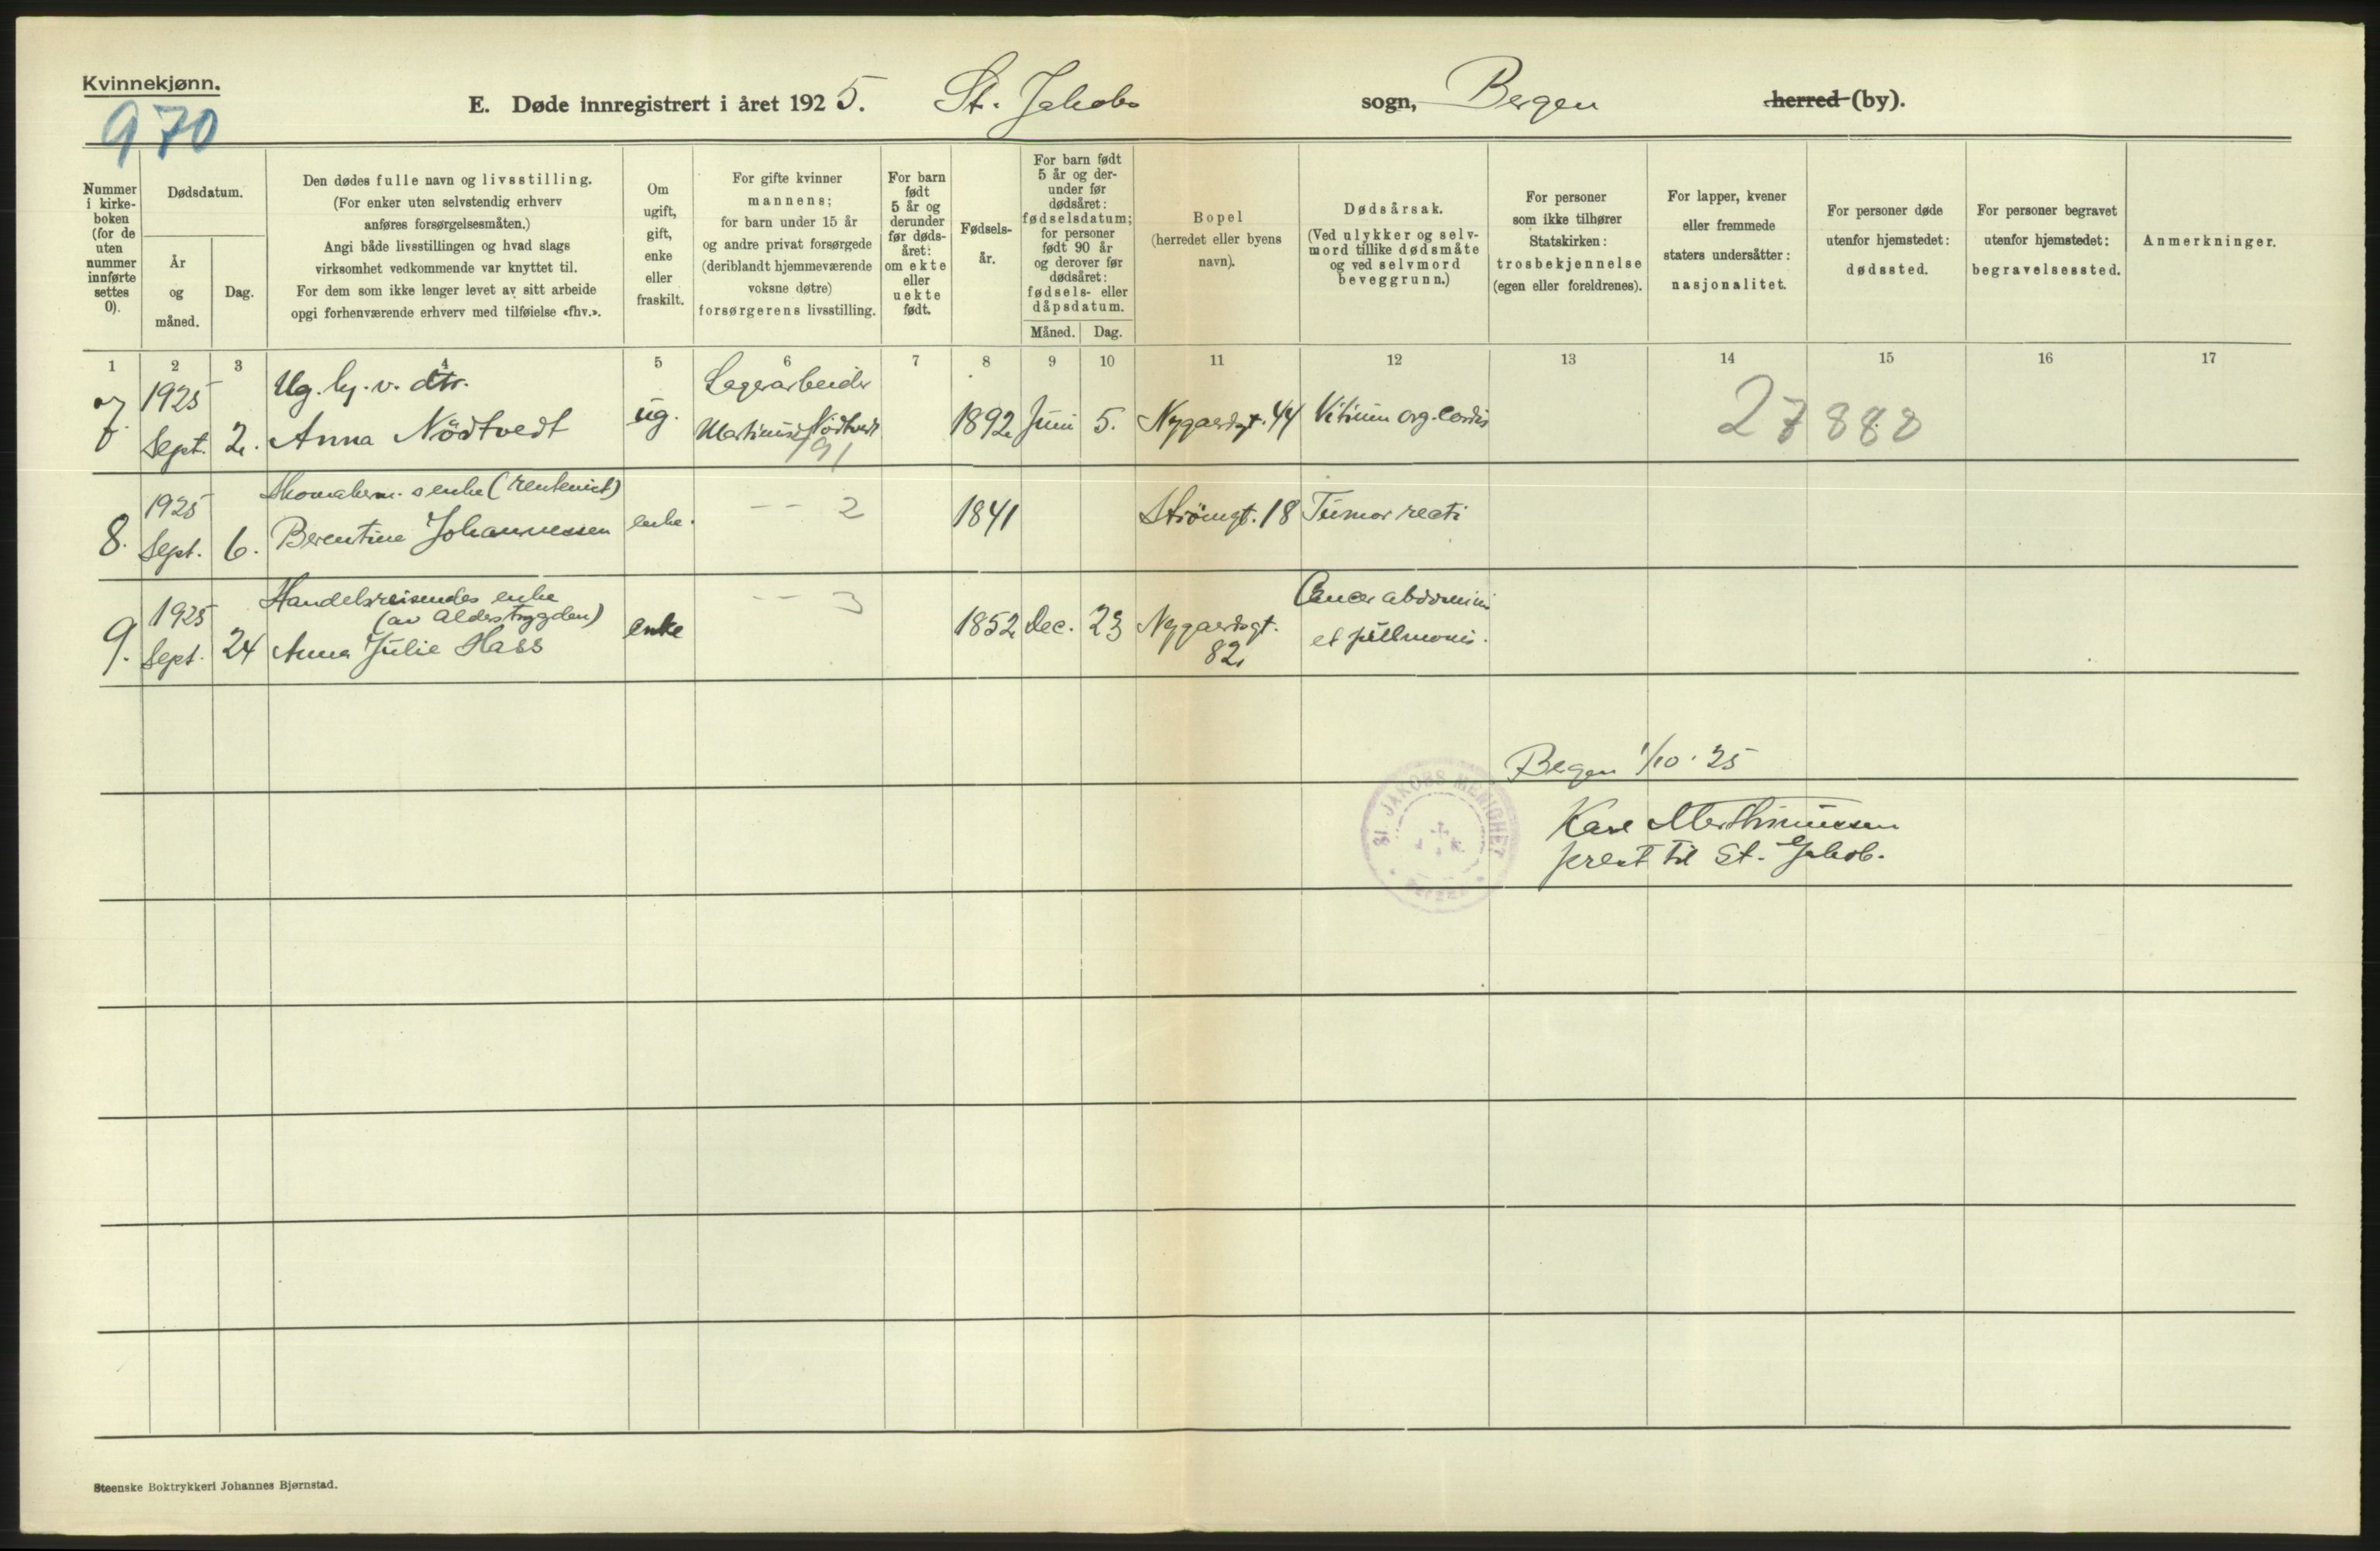 Kvinnekjønn.
970
E. Døde innregistrert i året 1925. St. Jakobs sogn, Bergen herred (by).
Nummer
i kirke-
boken
(for de
uten
nummer
innførte
settes
0).
Dødsdatum.
År
og
måned.
Dag.
Den dødes fulle navn og livsstilling.
(For enker uten selvstendig erhverv
anføres forsørgelsesmåten.)
Angi både livsstillingen og hvad slags
virksomhet vedkommende var knyttet til.
For dem som ikke lenger levet av sitt arbeide
opgi forhenværende erhverv med tilføielse «fhv.».
Om
ugift,
gift,
enke
eller
fraskilt.
For gifte kvinner
mannens;
for barn under 15 år
og andre privat forsørgede
(deriblandt hjemmeværende
voksne døtre)
forsørgerens livsstilling.
For barn
født
5 år og
derunder
før døds-
året:
om ekte
eller
uekte
født.
Fødsels-
år.
For barn født
5 år og der-
under før
dødsåret:
fødselsdatum;
for personer
født 90 år
og derover før
dødsåret:
fødsels- eller
dåpsdatum.
Måned. Dag.
Bopel
(herredet eller byens
navn).
Dødsårsak.
(Ved ulykker og selv-
mord tillike dødsmåte
og ved selvmord
beveggrunn.)
For personer
som ikke tilhører
Statskirken:
trosbekjennelse
(egen eller foreldrenes).
For lapper, kvener
eller fremmede
staters undersåtter:
nasjonalitet.
For personer døde
utenfor hjemstedet:
dødssted.
For personer begravet
utenfor hjemstedet:
begravelsessted.
Anmerkninger.
1 2 3 4 5 6 7 8 9 10 11 12 13 14 15 16 17
7.
1925
Sept.
2.
Ug. hj. v. dtr.
Anna Nödtvedt
ug.
Lagerarbeider
Martinus Nödtvedt
191
1892
Juni
5.
Nygaardsgt. 44
Vitium org. cordis
27888
8.
1925
Sept.
6.
Skomakerm.s enke (rentenist)
Berentine Johannessen
enke.
-- 2
1841
Strömgt. 18
Tumor recti
9.
1925
Sept.
24
Handelsreisendes enke
(av Alderstrygden)
Anna Julie Hass
enke
-- 3
1852
Dec.
23
Nygaardsgt.
82
Cancer abdominis
et pulmonis.
Bergen 1/10 . 25
ST. JAKOBS MENIGHET
BERGEN
prest til St. Jakob.
Steenske Boktrykkeri Johannes Bjørnstad.